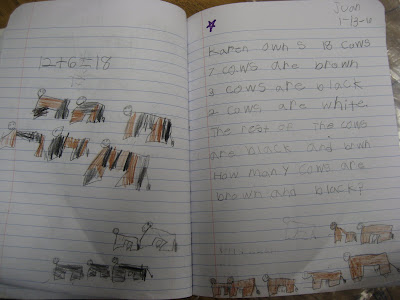 12+6=18
Juan
1-13-6
Karen own s 18 cows
7 cows are brown
3 cows are black
2 cows are white
The rest of The cows
are black and bwn
How many cows are
brown and black?